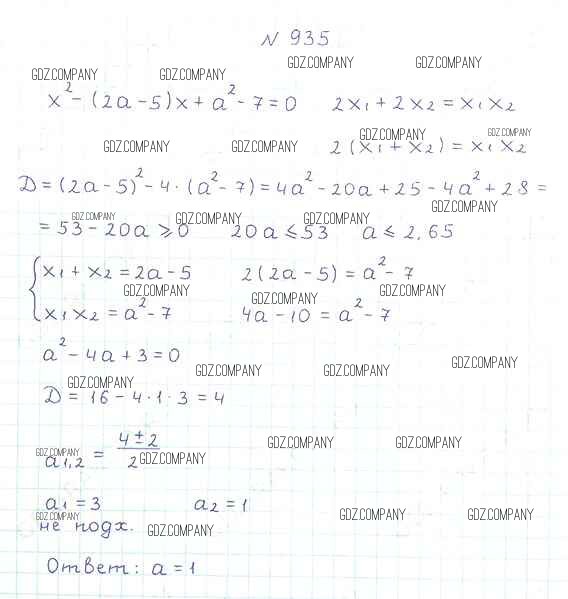 N 935
GDZ.COMPANY GDZ.COMPANY GDZ.COMPANY GDZ.COMPANY
x² - (2a - 5)x + a² - 7 = 0 2x₁ + 2x₂ = x₁x₂
GDZ.COMPANY GDZ.COMPANY GDZ.COMPANY GDZ.COMPANY
2(x₁ + x₂) = x₁x₂
D = (2a - 5)² - 4 · (a² - 7) = 4a² - 20a + 25 - 4a² + 28 =
GDZ.COMPANY GDZ.COMPANY GDZ.COMPANY GDZ.COMPANY
= 53 - 20a ⩾ 0 20a ⩽ 53 a ⩽ 2,65
x₁ + x₂ = 2a - 5 2(2a - 5) = a² - 7
GDZ.COMPANY GDZ.COMPANY GDZ.COMPANY
x₁x₂ = a² - 7 4a - 10 = a² - 7
a² - 4a + 3 = 0
GDZ.COMPANY GDZ.COMPANY GDZ.COMPANY GDZ.COMPANY
D = 16 - 4 · 1 · 3 = 4
a₁,₂ = (4 ± 2)/2
GDZ.COMPANY GDZ.COMPANY GDZ.COMPANY GDZ.COMPANY
a₁ = 3 a₂ = 1
GDZ.COMPANY GDZ.COMPANY GDZ.COMPANY GDZ.COMPANY
не подх.
Ответ: a = 1